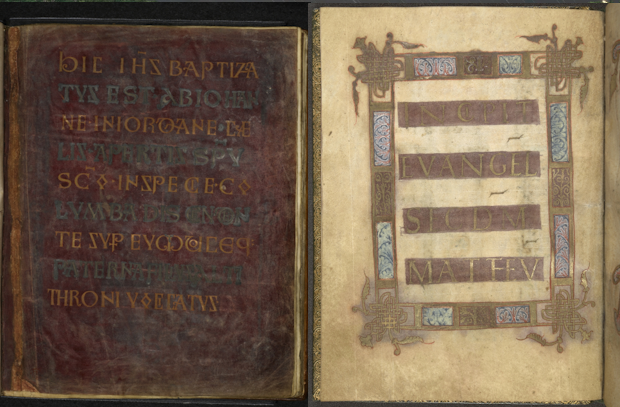 HIC IHS BAPTIZA
TUS EST AB IOHAN
NE IN IORDANE CE
LIS APERTIS SPU
SCO INSPECIE CO
LUMBA
TE SUP EUM
PATERNA
THRONI
INCIPIT
EVANGEL
SECDM
MATHEV